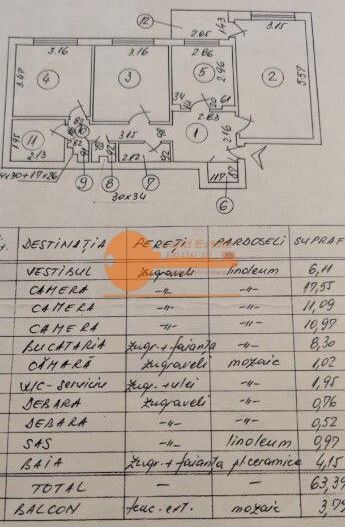 12
2.65
1.43
3.15
3.16
3.16
2.86
3.47
4
3
5
2.96
2
5.57
34
61
2.83
1
2.16
11
1.95
2.13
3.15
98
2.12
92
7
9
8
6
117
4x30+17x26
30x34
DESTINAȚIA PEREȚI PARDOSELI SUPRAF
VESTIBUL zugrăveli linoleum 6,11
CAMERA -"- -"- 17,55
CAMERA -"- -"- 11,09
CAMERA -"- -"- 10,97
BUCATARIA zugr.+faianța -"- 8,30
CĂMARĂ zugrăveli mozaic 1,02
W/C-serviciu zugr.+ulei -"- 1,95
DEBARA zugrăveli -"- 0,76
DEBARA -"- -"- 0,52
SAS -"- linoleum 0,97
BAIA zugr.+faianța pl.ceramice 4,15
TOTAL — — 63,39
BALCON tenc.ext. mozaic 3,79